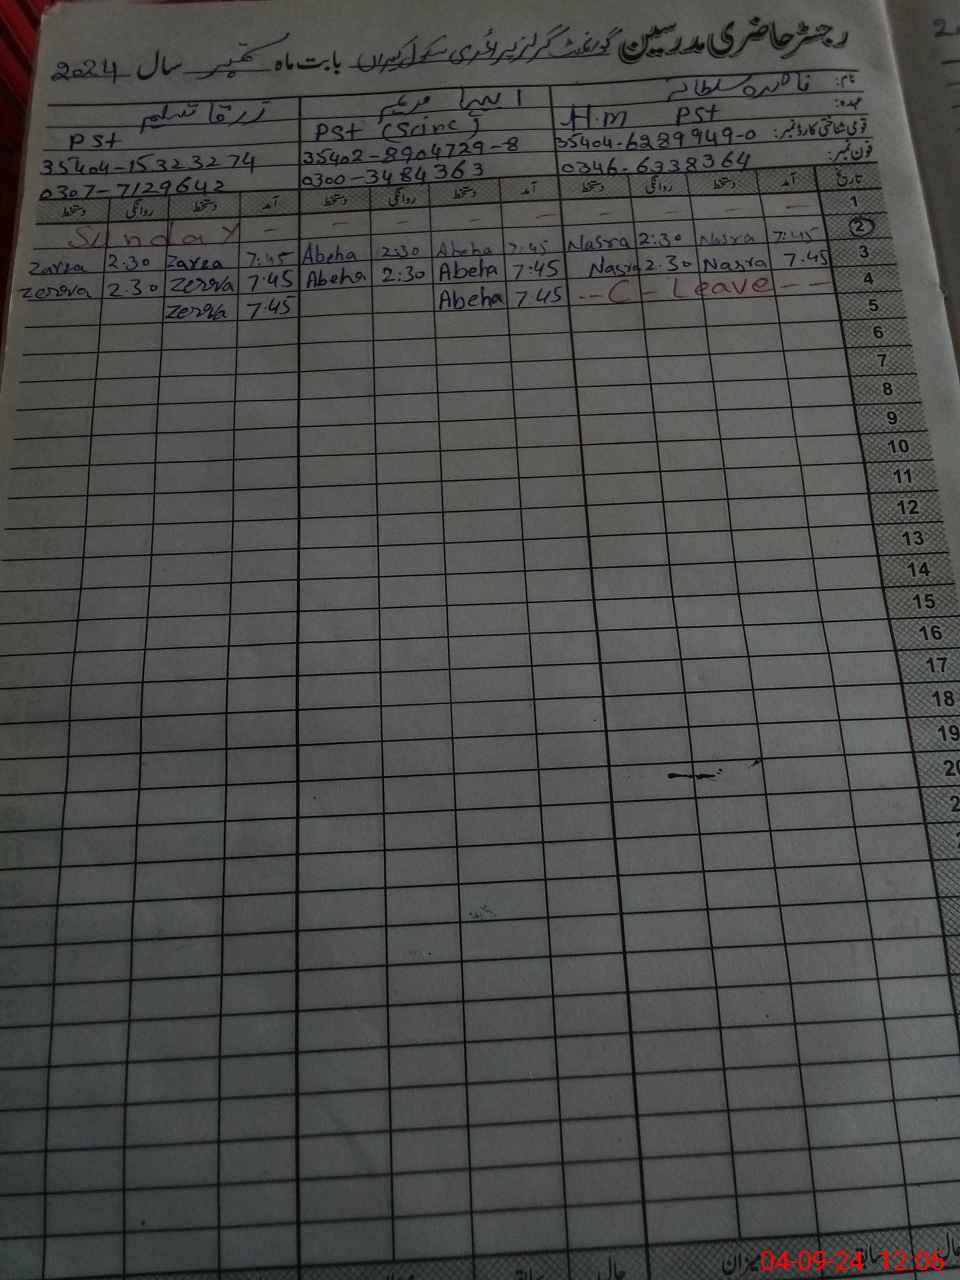 رجسٹر حاضری مدرسین گورنمنٹ گرلز پرائمری سکول بابت ماہ ستمبر سال 2024
نام:
عہدہ: H.M PST PST (Scinc) PST
قومی شناختی کارڈ نمبر: 35404-6289949-0 35402-8904729-8 35404-1532327 4
فون نمبر: 0346-6338364 0300-3484363 0307-7129642
تاریخ آمد دستخط روانگی دستخط آمد دستخط روانگی دستخط آمد دستخط روانگی دستخط
1 Sunday
2 7:45 Nasra 2:30 Nasra 7:45 Abeha 2:30 Abeha 7:45 Zarqa 2:30 Zarqa
3 7.45 Nasra 2.30 Nasra 7:45 Abeha 2:30 Abeha 7.45 Zerqa 2.30 Zerqa
4 -- C - Leave - - 7.45 Abeha 7.45 Zerqa
5
6
7
8
9
10
11
12
13
14
15
16
17
18
19
20
میزان
04-09-24 12:06